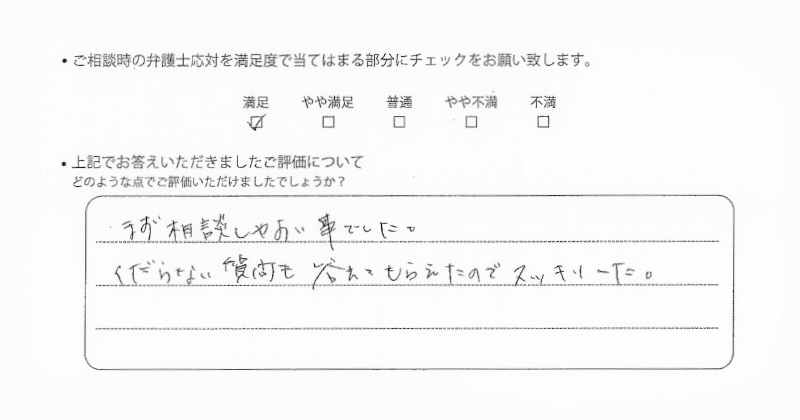 ・ご相談時の弁護士応対を満足度で当てはまる部分にチェックをお願い致します。
満足 やや満足 普通 やや不満 不満
☑ □ □ □ □
・上記でお答えいただきましたご評価について
どのような点でご評価いただけましたでしょうか？
まず相談しやすい事でした。
くだらない質問も答えてもらえたのでスッキリした。